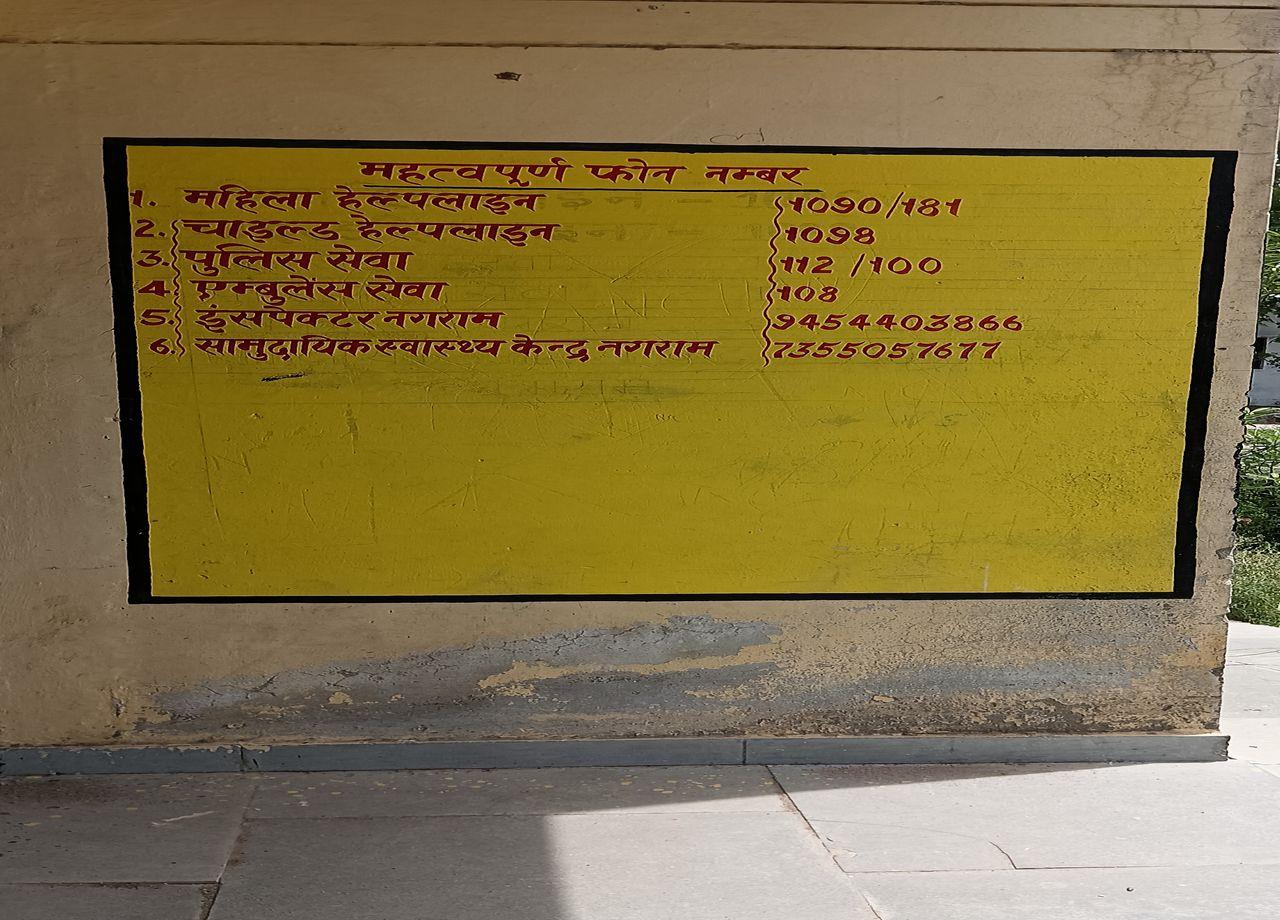 महत्वपूर्ण फोन नम्बर
1. महिला हेल्पलाइन 1090/181
2. चाइल्ड हेल्पलाइन 1098
3. पुलिस सेवा 112 /100
4 एम्बुलेंस सेवा 108
5. इंसपेक्टर नगराम 9454403866
6. सामुदायिक स्वास्थ्य केन्द्र नगराम 7355057677